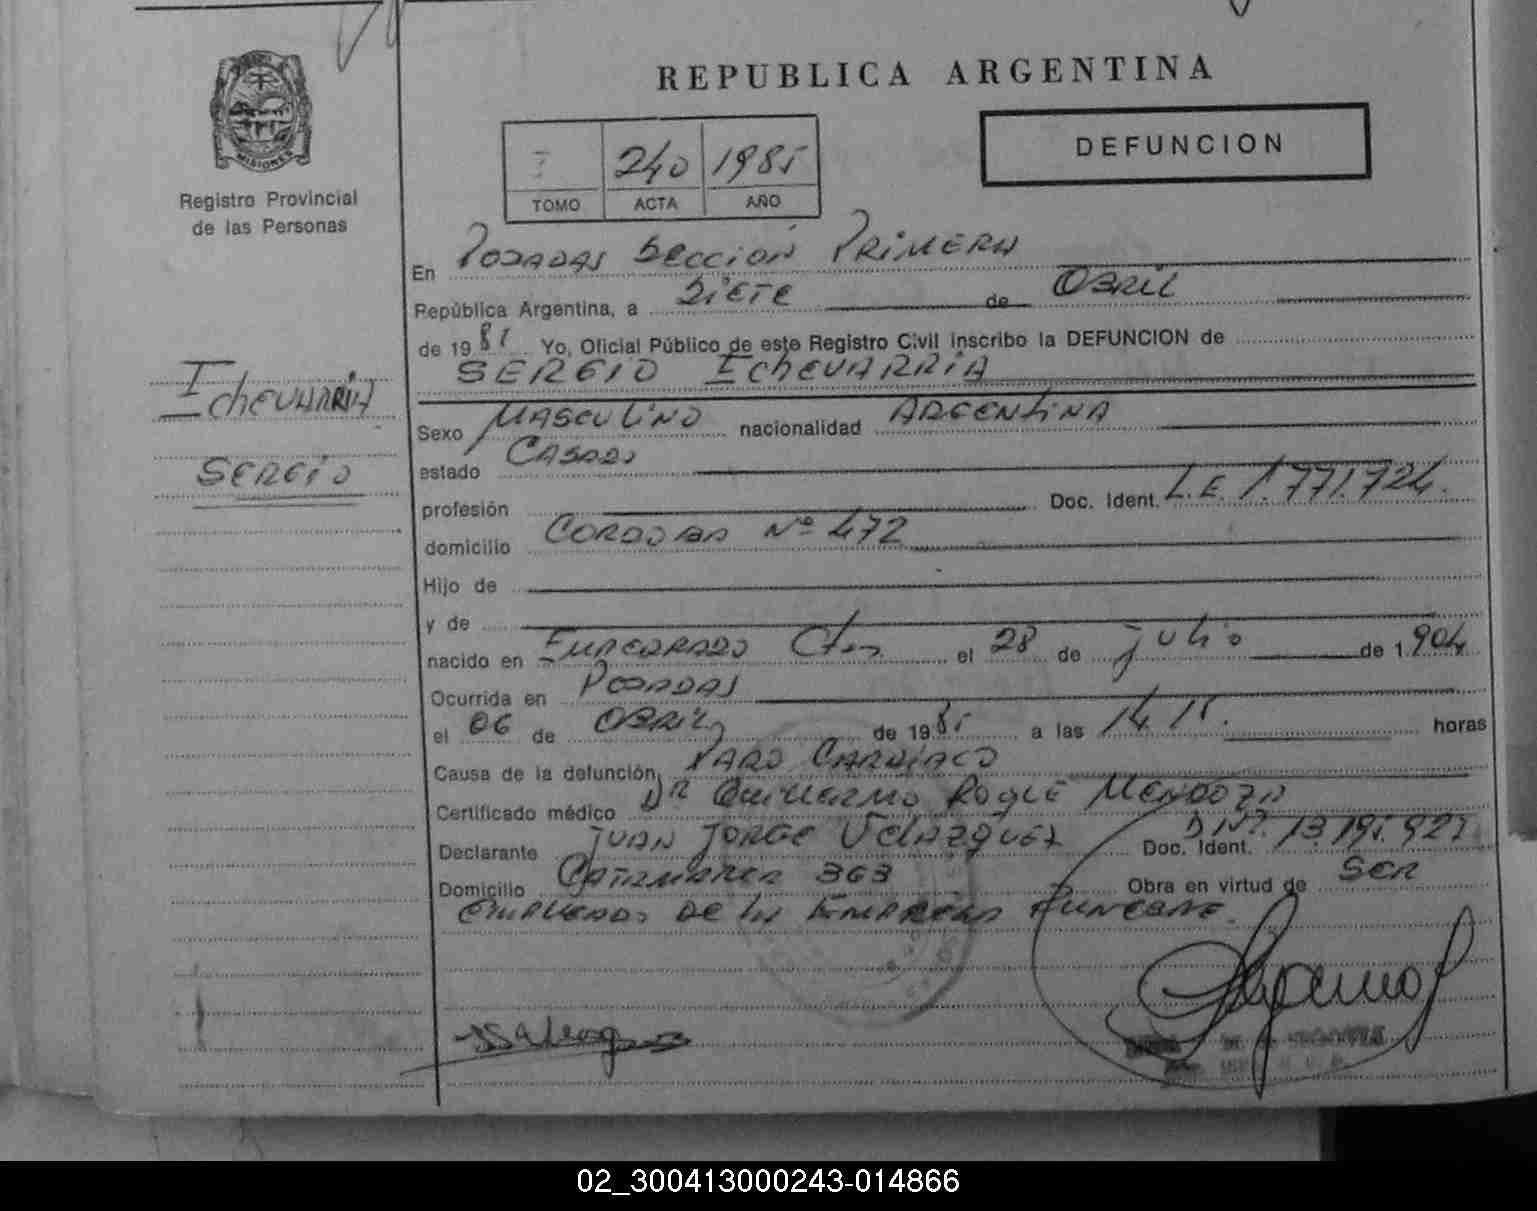 REPUBLICA ARGENTINA
DEFUNCION
MISIONES
Registro Provincial
de las Personas
240 1985
TOMO ACTA AÑO
En Posadas Sección Primera
República Argentina, a Siete de Abril
de 1985 Yo, Oficial Público de este Registro Civil inscribo la DEFUNCION de
SERGIO IchEVARRIA
IchEVARRIA
SERGIO
Sexo MASCULINO nacionalidad ARGENTINA
estado CASADO
profesión Doc. Ident. L.E 1.771.724.
domicilio CORDOBA Nº 472
Hijo de
y de
nacido en EMPEDRADO Ctes el 28 de julio de 1.904
Ocurrida en POSADAS
el 06 de ABRIL de 1985 a las 14 15. horas
Causa de la defunción PARO CARDIACO
Certificado médico DR GUILLERMO ROQUE MENDOZA
Declarante JUAN JORGE VELAZQUEZ Doc. Ident. DNI. 13.195.927
Domicilio CATAMARCA 363 Obra en virtud de SER
EMPLEADO DE LA EMPRESA FUNEBRE.
02_300413000243-014866